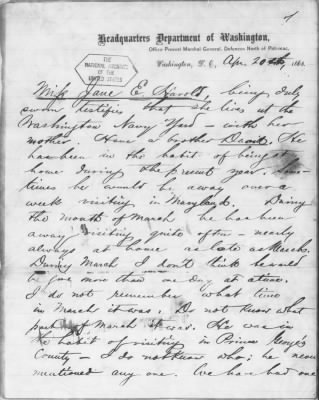 1
Headquarters Department of Washington,
Office Provost Marshal General, Defences North of Potomac,
THE
NATIONAL ARCHIVES
OF THE
UNITED STATES
Washington, D. C., Apr. 20th, 186
Miss Jane E. Harold, being duly
sworn testifies that she lives at the
Washington Navy Yard - with her
mother. Have a brother David. He
has been in the habit of being at
home during the present year. Some-
times he would be away over a
week visiting in Maryland. During
the month of March he has been
away visiting quite often - nearly
always at home as late as
During March I don't think he would
be gone more than one day at a time.
I do not remember what time
in March it was. Do not know what
part of March it was. He was in
the habit of visiting in Prince George's
County - I do not know who; he never
mentioned any one. We have had one